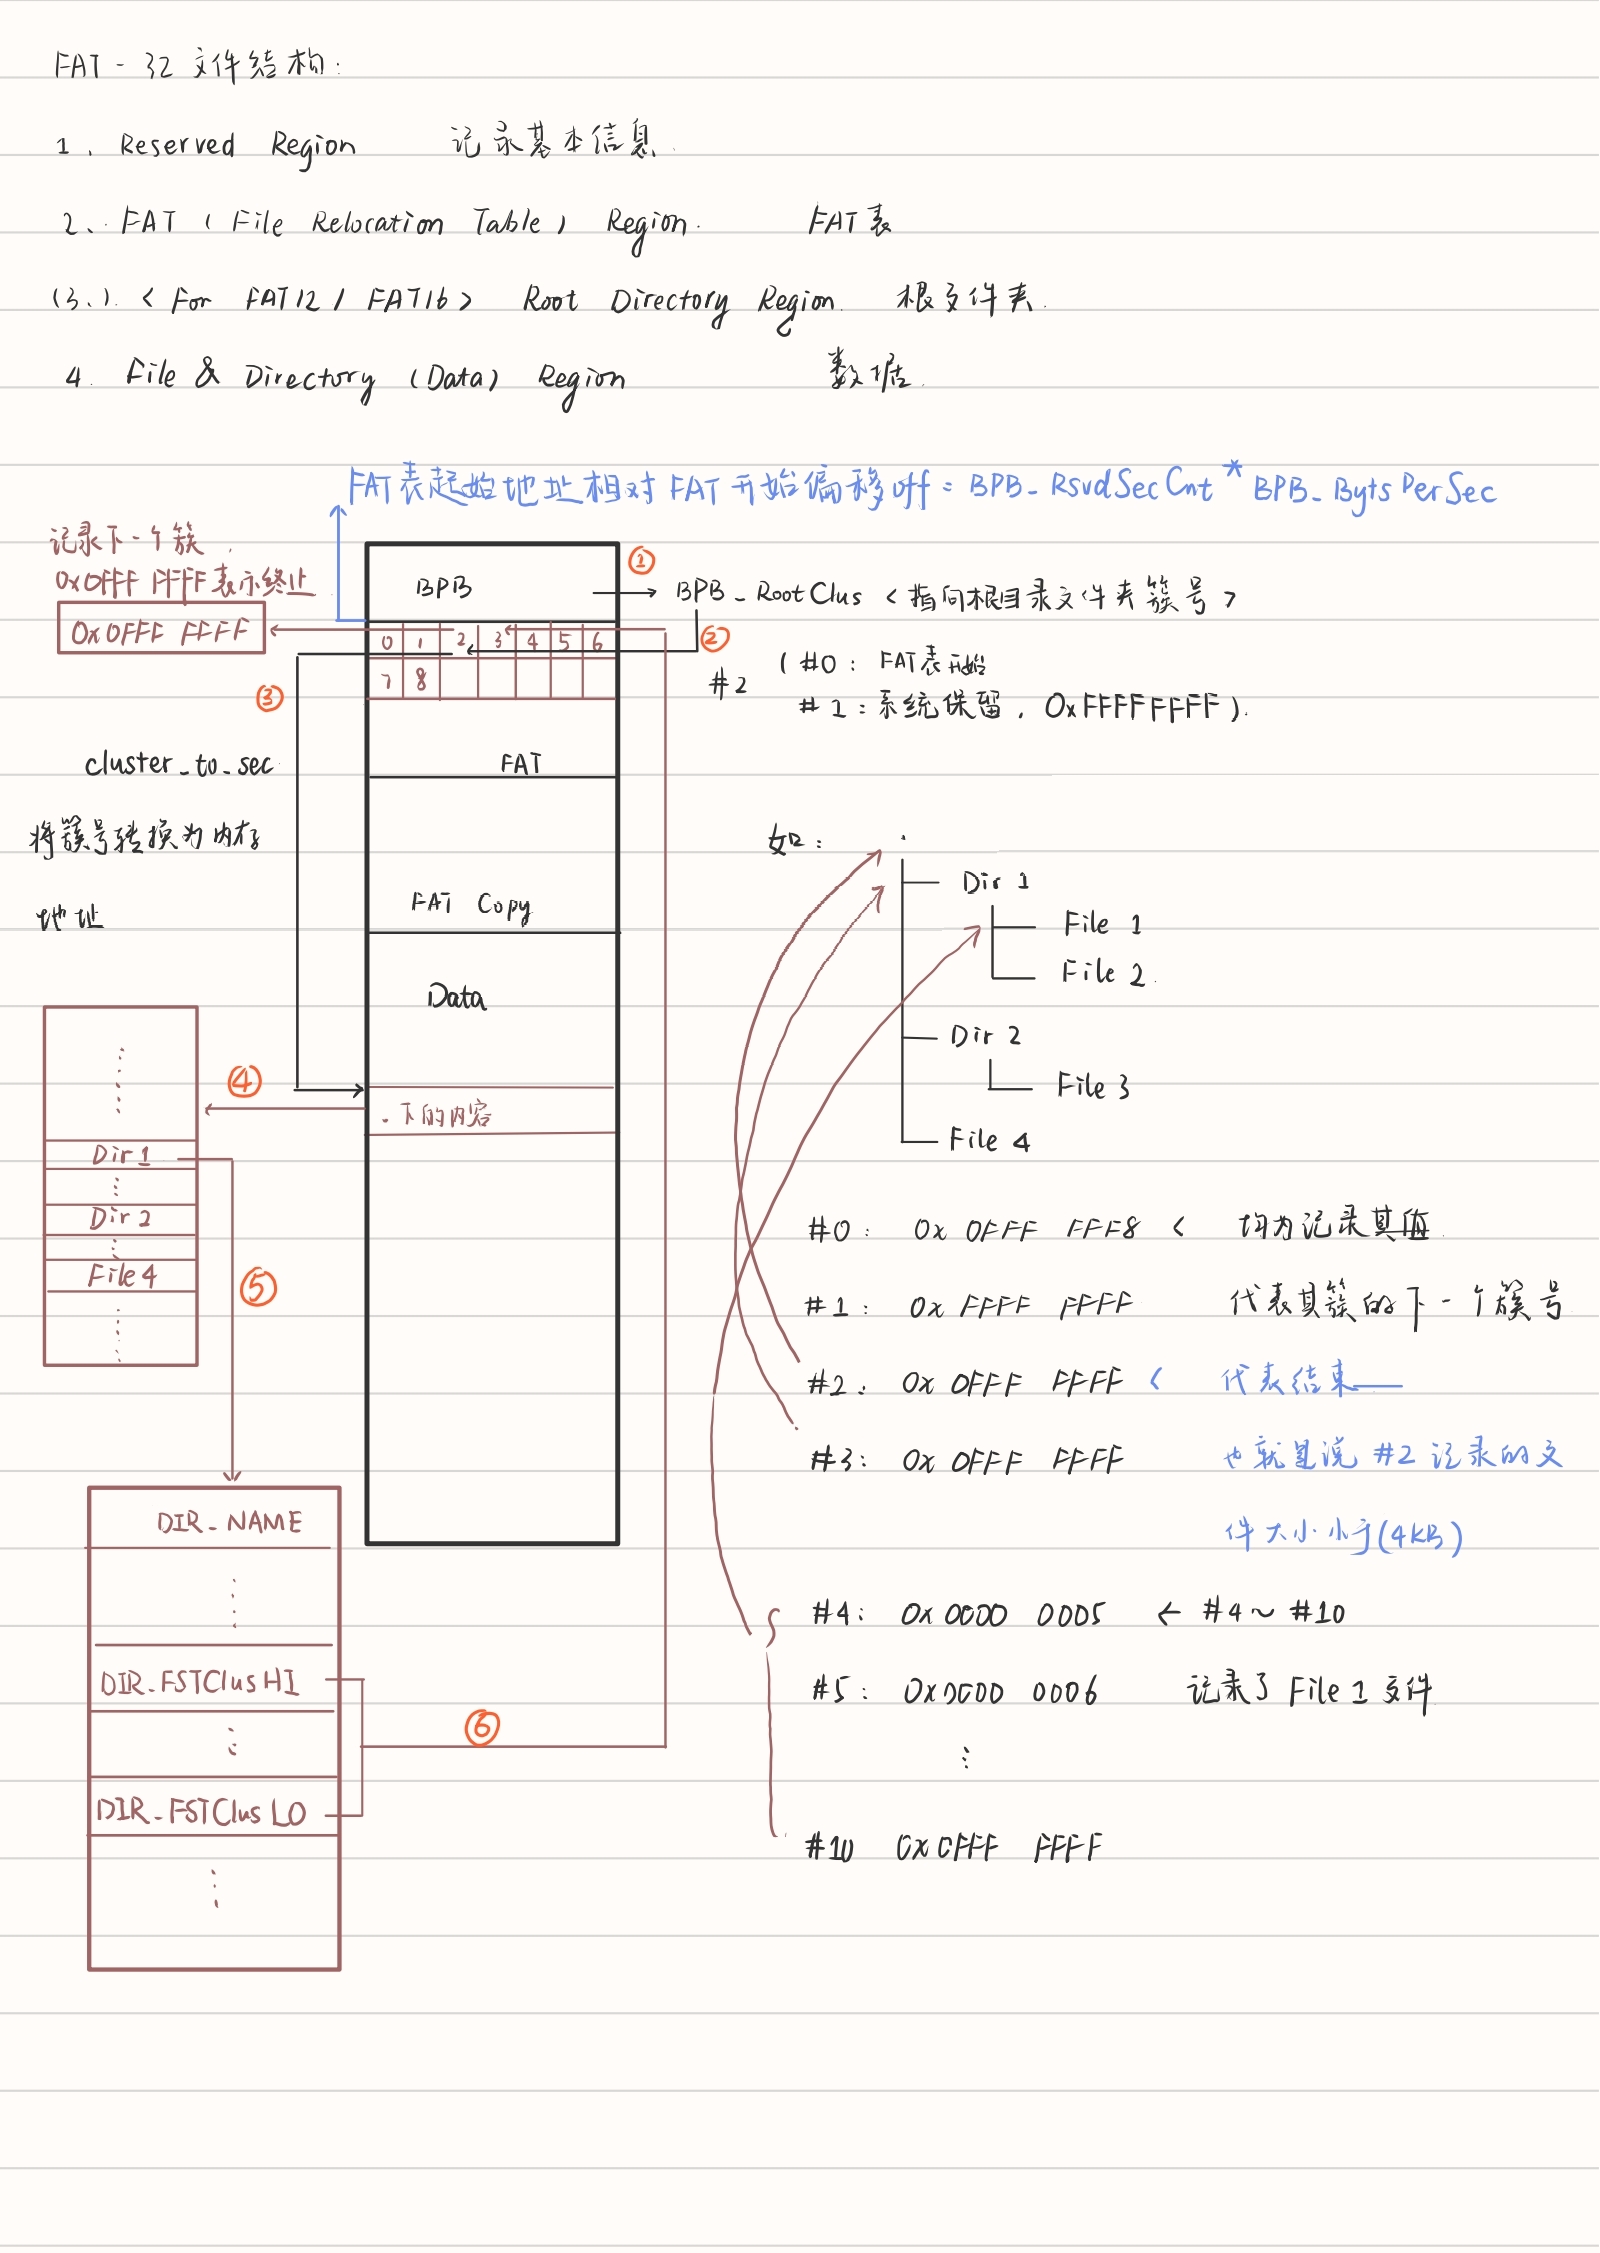 FAT - 32 文件结构:
1、Reserved Region 记录基本信息.
2、FAT (File Relocation Table) Region. FAT表
(3、). <For FAT12 / FAT16> Root Directory Region. 根文件夹.
4. File & Directory (Data) Region 数据.
FAT表起始地址相对FAT开始偏移off: BPB_RsvdSecCnt * BPB_BytsPerSec
记录下一个簇.
0x0FFF FFFF表示终止
0x0FFF FFFF
BPB
① BPB_RootClus <指向根目录文件夹簇号>
0 1 2 3 4 5 6
7 8
②
#2 (#0: FAT表开始
#1: 系统保留, 0xFFFFFFFF).
③
cluster_to_sec
将簇号转换为内存
地址
FAT
FAT Copy
Data
.下的内容
④
Dir 1
Dir 2
File 4
⑤
DIR_NAME
DIR_FSTClusHI
DIR_FSTClusLO
⑥
如: .
Dir 1
File 1
File 2.
Dir 2
File 3
File 4
#0: 0x 0FFF FFF8 < 均为记录其值
#1: 0x FFFF FFFF 代表其簇的下一个簇号
#2: 0x 0FFF FFFF < 代表结束——
#3: 0x 0FFF FFFF 也就是说 #2 记录的文
件大小小于(4KB)
#4: 0x 0000 0005 ← #4~#10
#5: 0x0000 0006 记录了 File 1 文件
⋮
#10 0x0FFF FFFF